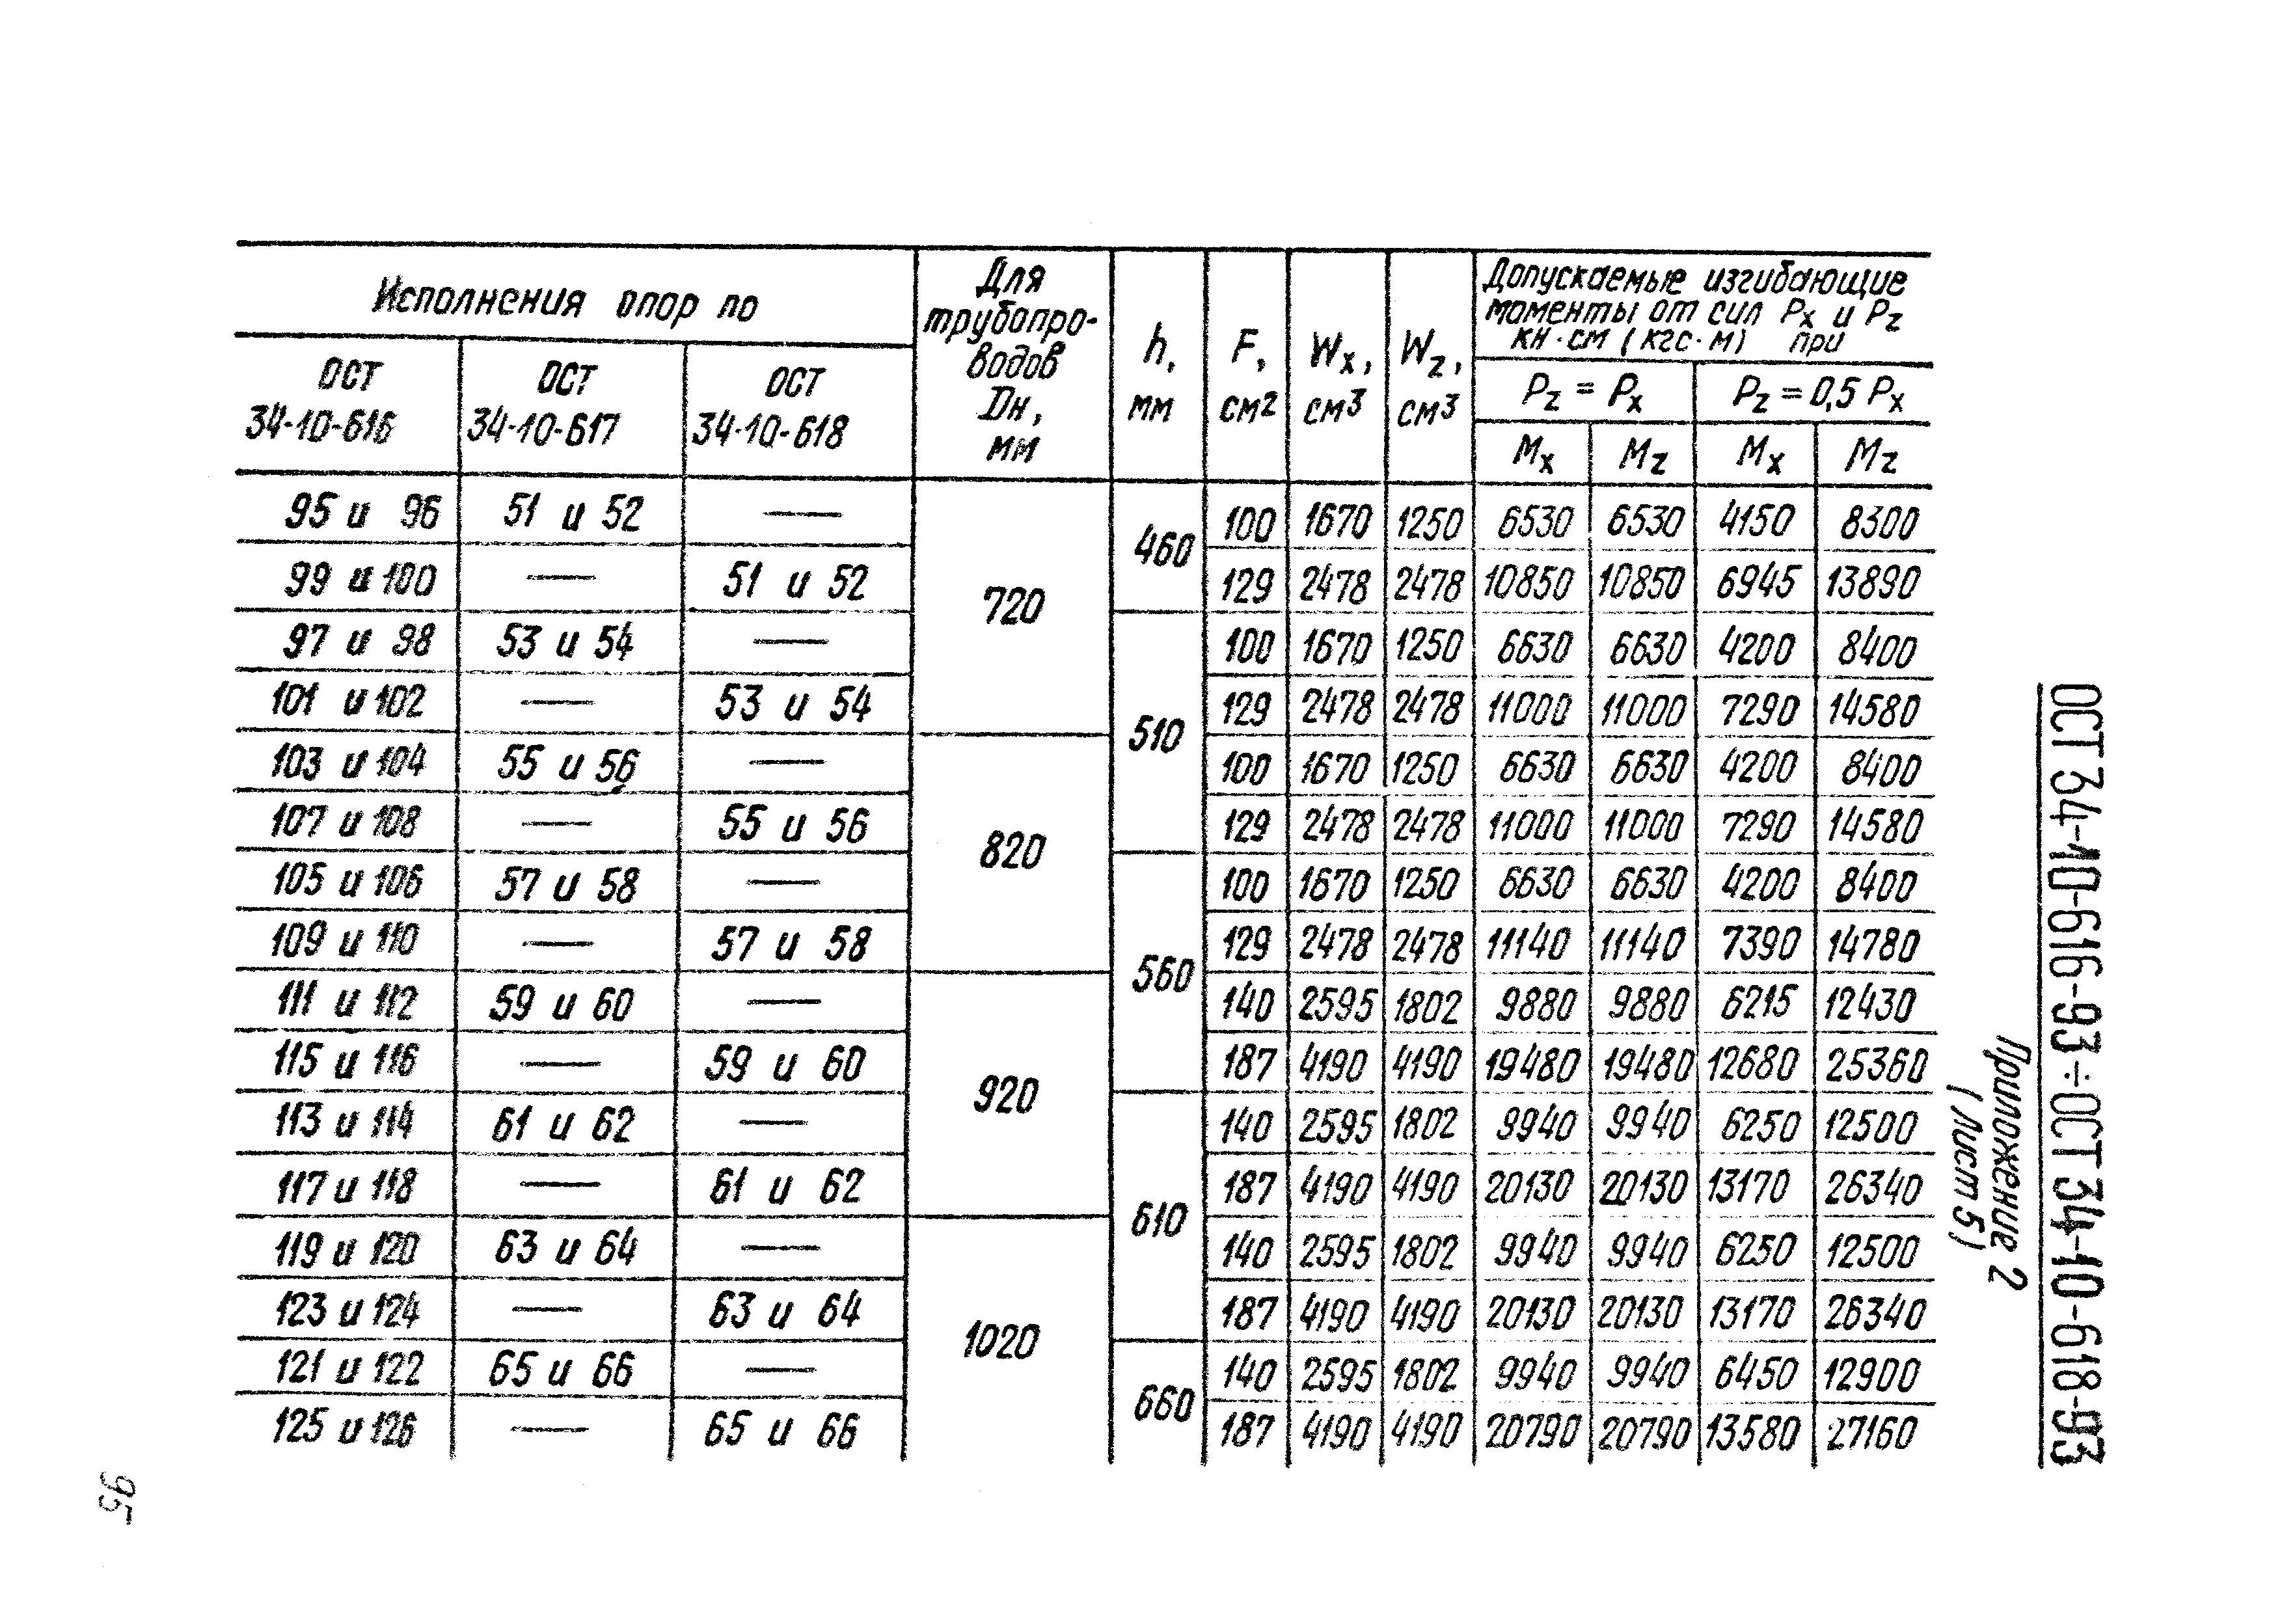 Исполнения опор по
Для трубопро-
водов
Дн,
мм
h,
мм
F,
см2
Wx,
см3
Wz,
см3
Допускаемые изгибающие
моменты от сил Px и Pz
кН·см (кгс·м) при
ОСТ
34-10-616
ОСТ
34-10-617
ОСТ
34-10-618
Pz = Px
Pz = 0,5 Px
Mx Mz Mx Mz
95 и 96 51 и 52 — 720 460 100 1670 1250 6530 6530 4150 8300
99 и 100 — 51 и 52 129 2478 2478 10850 10850 6945 13890
97 и 98 53 и 54 — 510 100 1670 1250 6630 6630 4200 8400
101 и 102 — 53 и 54 129 2478 2478 11000 11000 7290 14580
103 и 104 55 и 56 — 820 100 1670 1250 6630 6630 4200 8400
107 и 108 — 55 и 56 129 2478 2478 11000 11000 7290 14580
105 и 106 57 и 58 — 560 100 1670 1250 6630 6630 4200 8400
109 и 110 — 57 и 58 129 2478 2478 11140 11140 7390 14780
111 и 112 59 и 60 — 920 140 2595 1802 9880 9880 6215 12430
115 и 116 — 59 и 60 187 4190 4190 19480 19480 12680 25360
113 и 114 61 и 62 — 610 140 2595 1802 9940 9940 6250 12500
117 и 118 — 61 и 62 187 4190 4190 20130 20130 13170 26340
119 и 120 63 и 64 — 1020 140 2595 1802 9940 9940 6250 12500
123 и 124 — 63 и 64 187 4190 4190 20130 20130 13170 26340
121 и 122 65 и 66 — 660 140 2595 1802 9940 9940 6450 12900
125 и 126 — 65 и 66 187 4190 4190 20790 20790 13580 27160
ОСТ 34-10-616-93÷ОСТ 34-10-618-93
Приложение 2
(Лист 5)
95